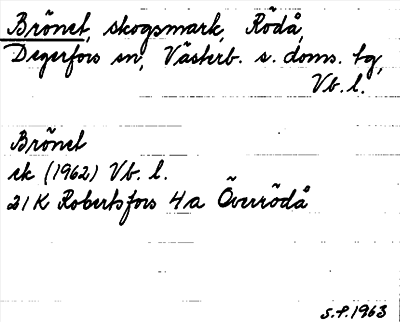 Brönet, skogsmark, Rödå,
Degerfors sn, Västerb. s. doms. tg,
Vb. l.
Brönet
ek (1962) Vb. l.
21 K Robertsfors 4a Överrödå
S.P. 1963